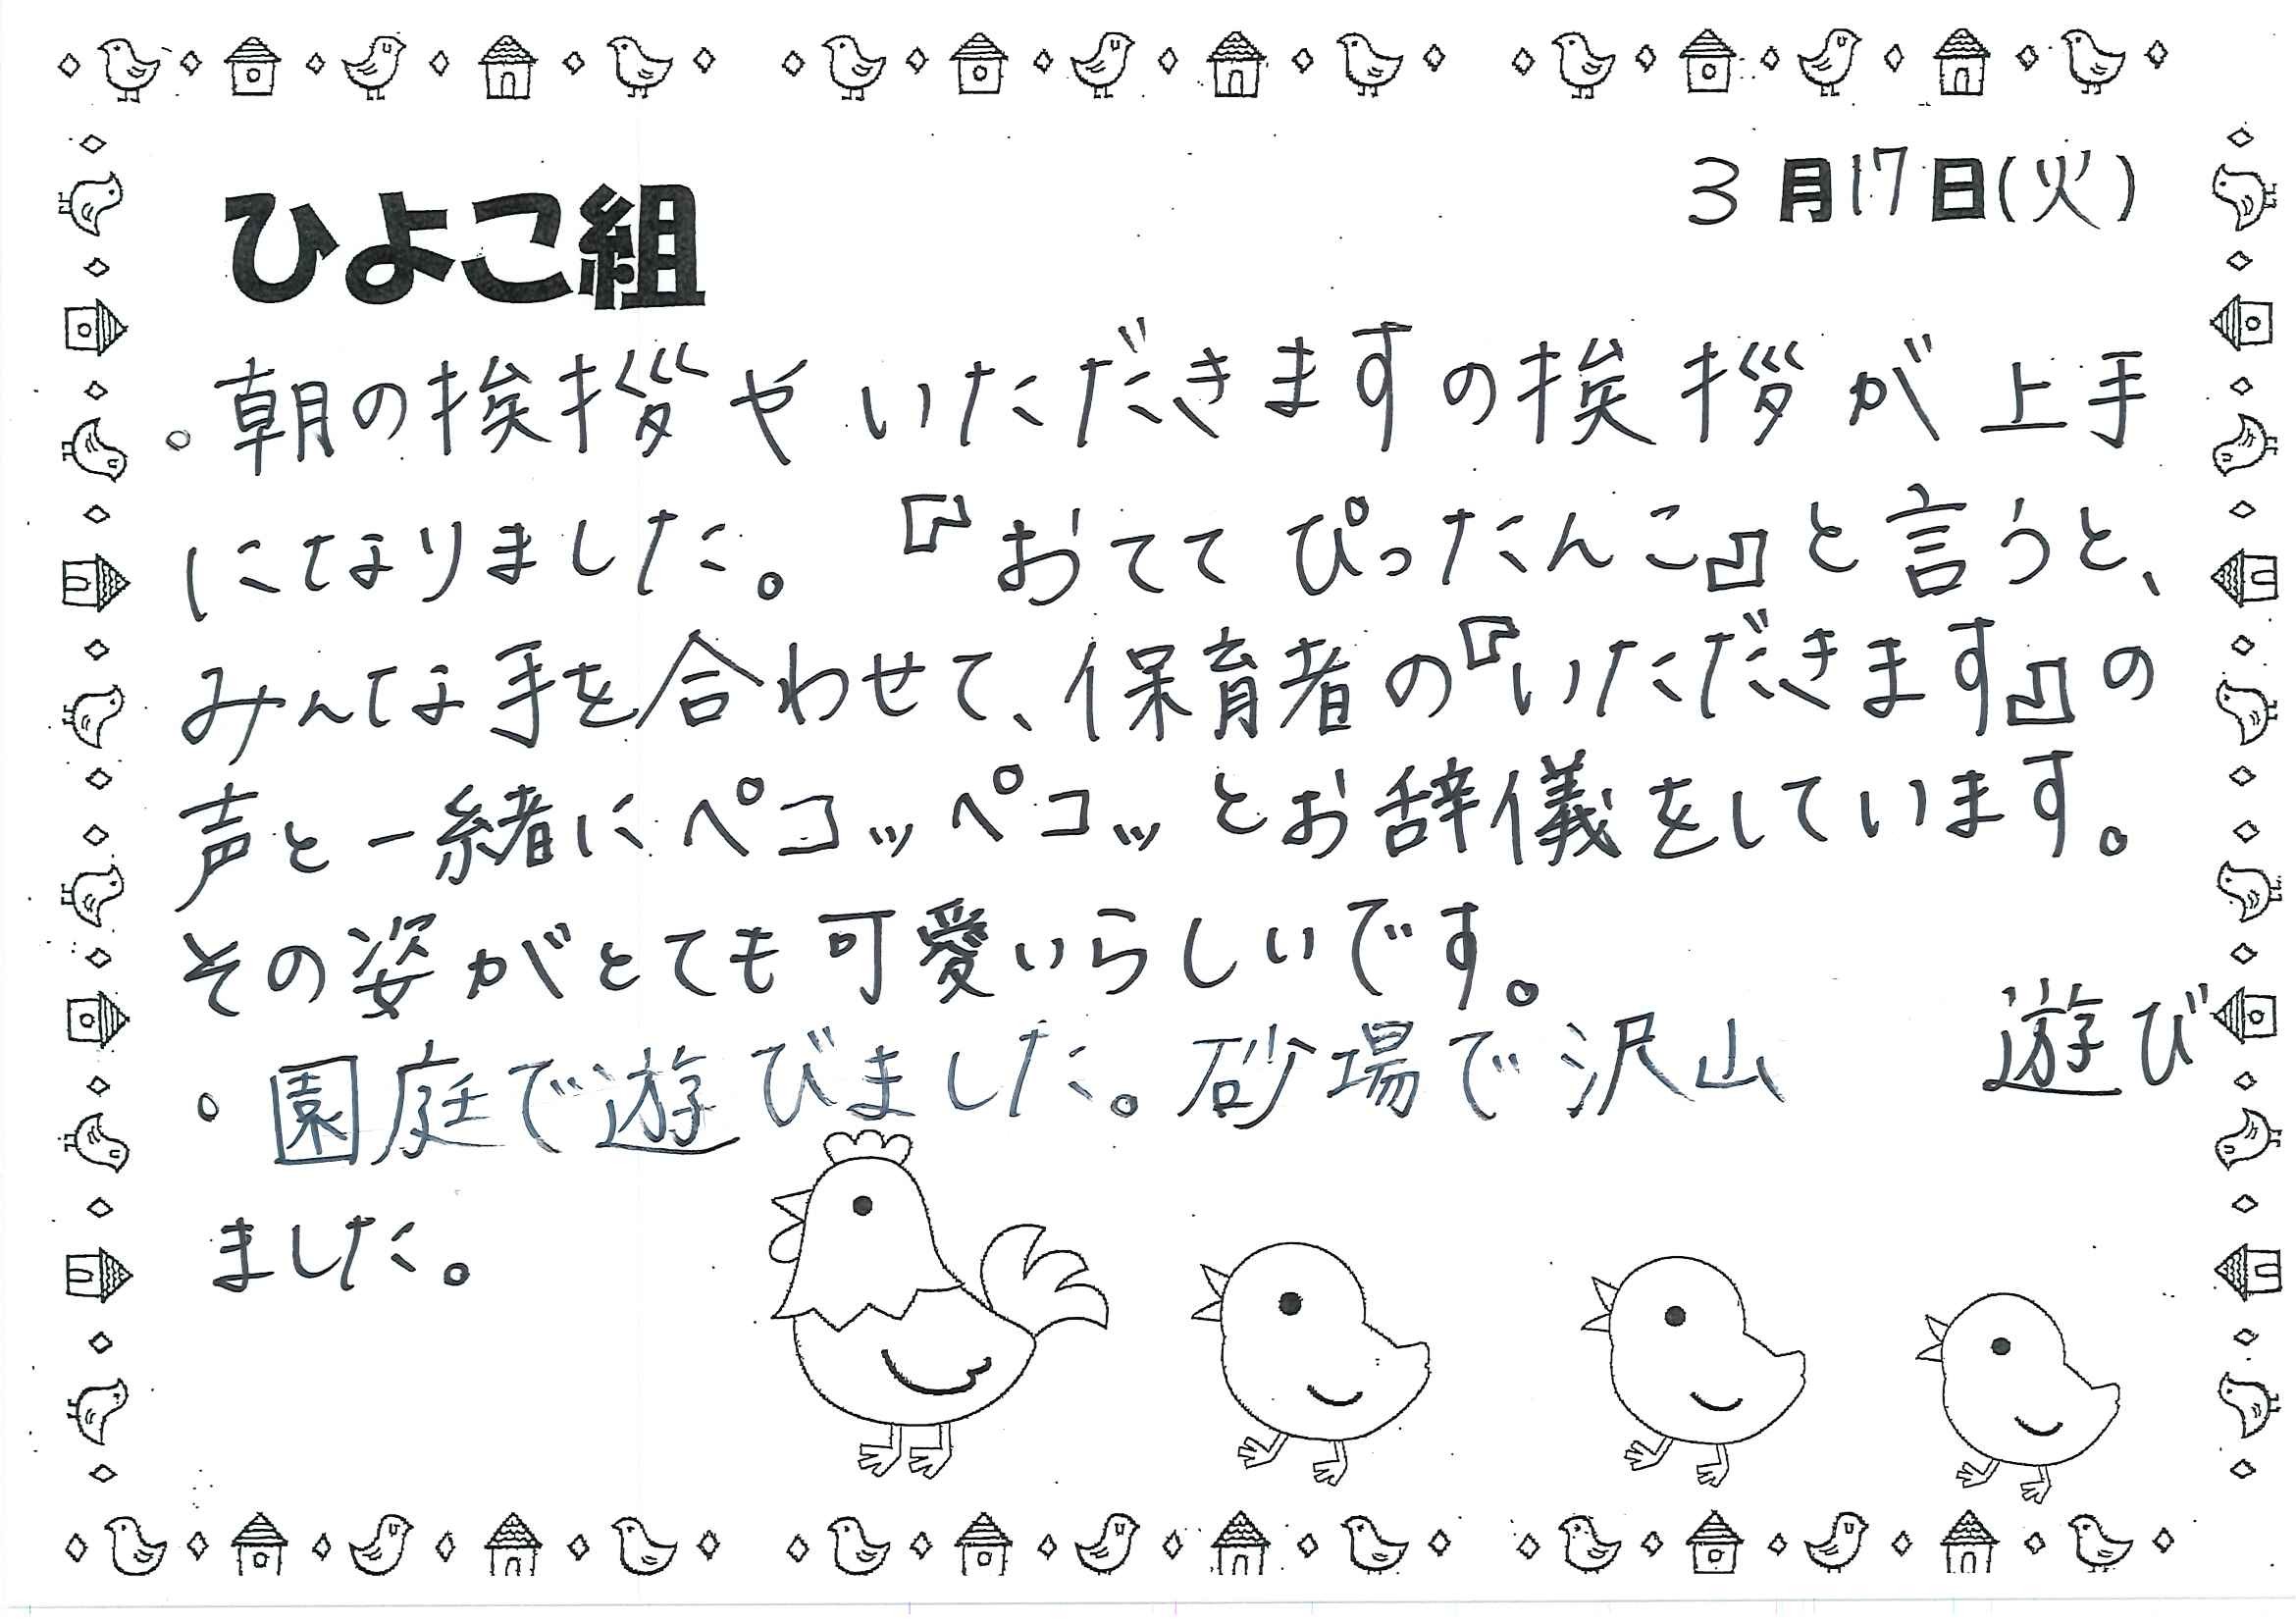 3月17日(火)
ひよこ組
。朝の挨拶やいただきますの挨拶が上手
になりました。『おててぴったんこ』と言うと、
みんな手を合わせて、保育者の『いただきます』の
声と一緒にペコッペコッとお辞儀をしています。
その姿がとても可愛いらしいです。
。園庭で遊びました。砂場で沢山 遊び
ました。